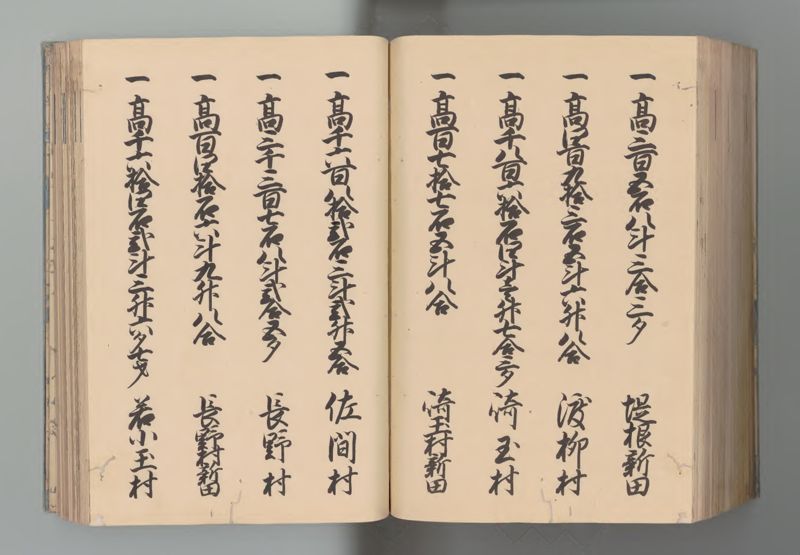 一高三百五石八斗三合三夕 堤根新田
一高四百九拾三石五斗六升八合 渡柳村
一高千八百六拾石四斗壱升七合三夕 崎玉村
一高百七拾七石五斗八合 崎玉村新田
一高千六百八拾弐石三斗弐升五合 佐間村
一高二千三百七石八斗弐合五夕 長野村
一高百四拾石六斗九升八合 長野村新田
一高千六拾四石弐斗三升六夕七才 若小玉村